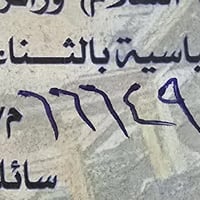 السلام) ورائر
باسية بالثناء
٦٦٦٤٩ م/
سائل